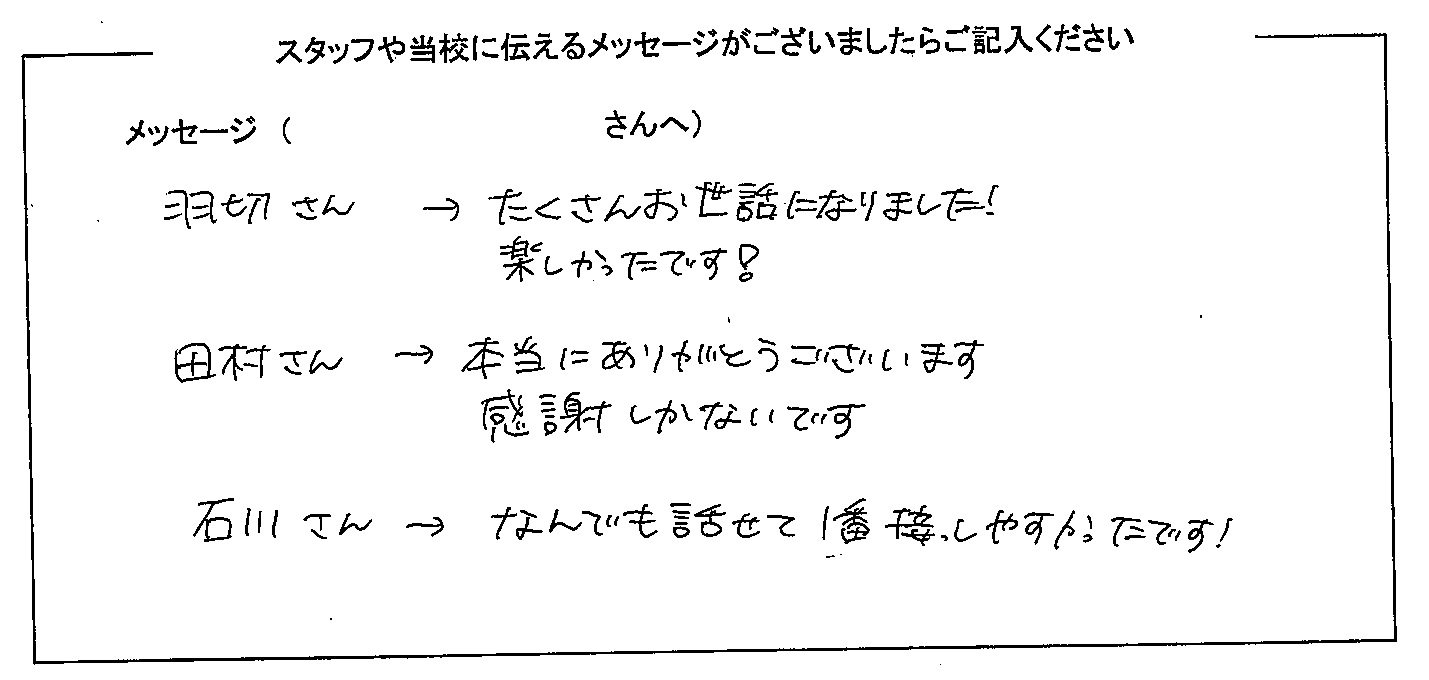 スタッフや当校に伝えるメッセージがございましたらご記入ください
メッセージ ( さんへ)
羽切さん → たくさんお世話になりました!
楽しかったです!
田村さん → 本当にありがとうございます
感謝しかないです
石川さん → なんでも話せて1番接しやすかったです!